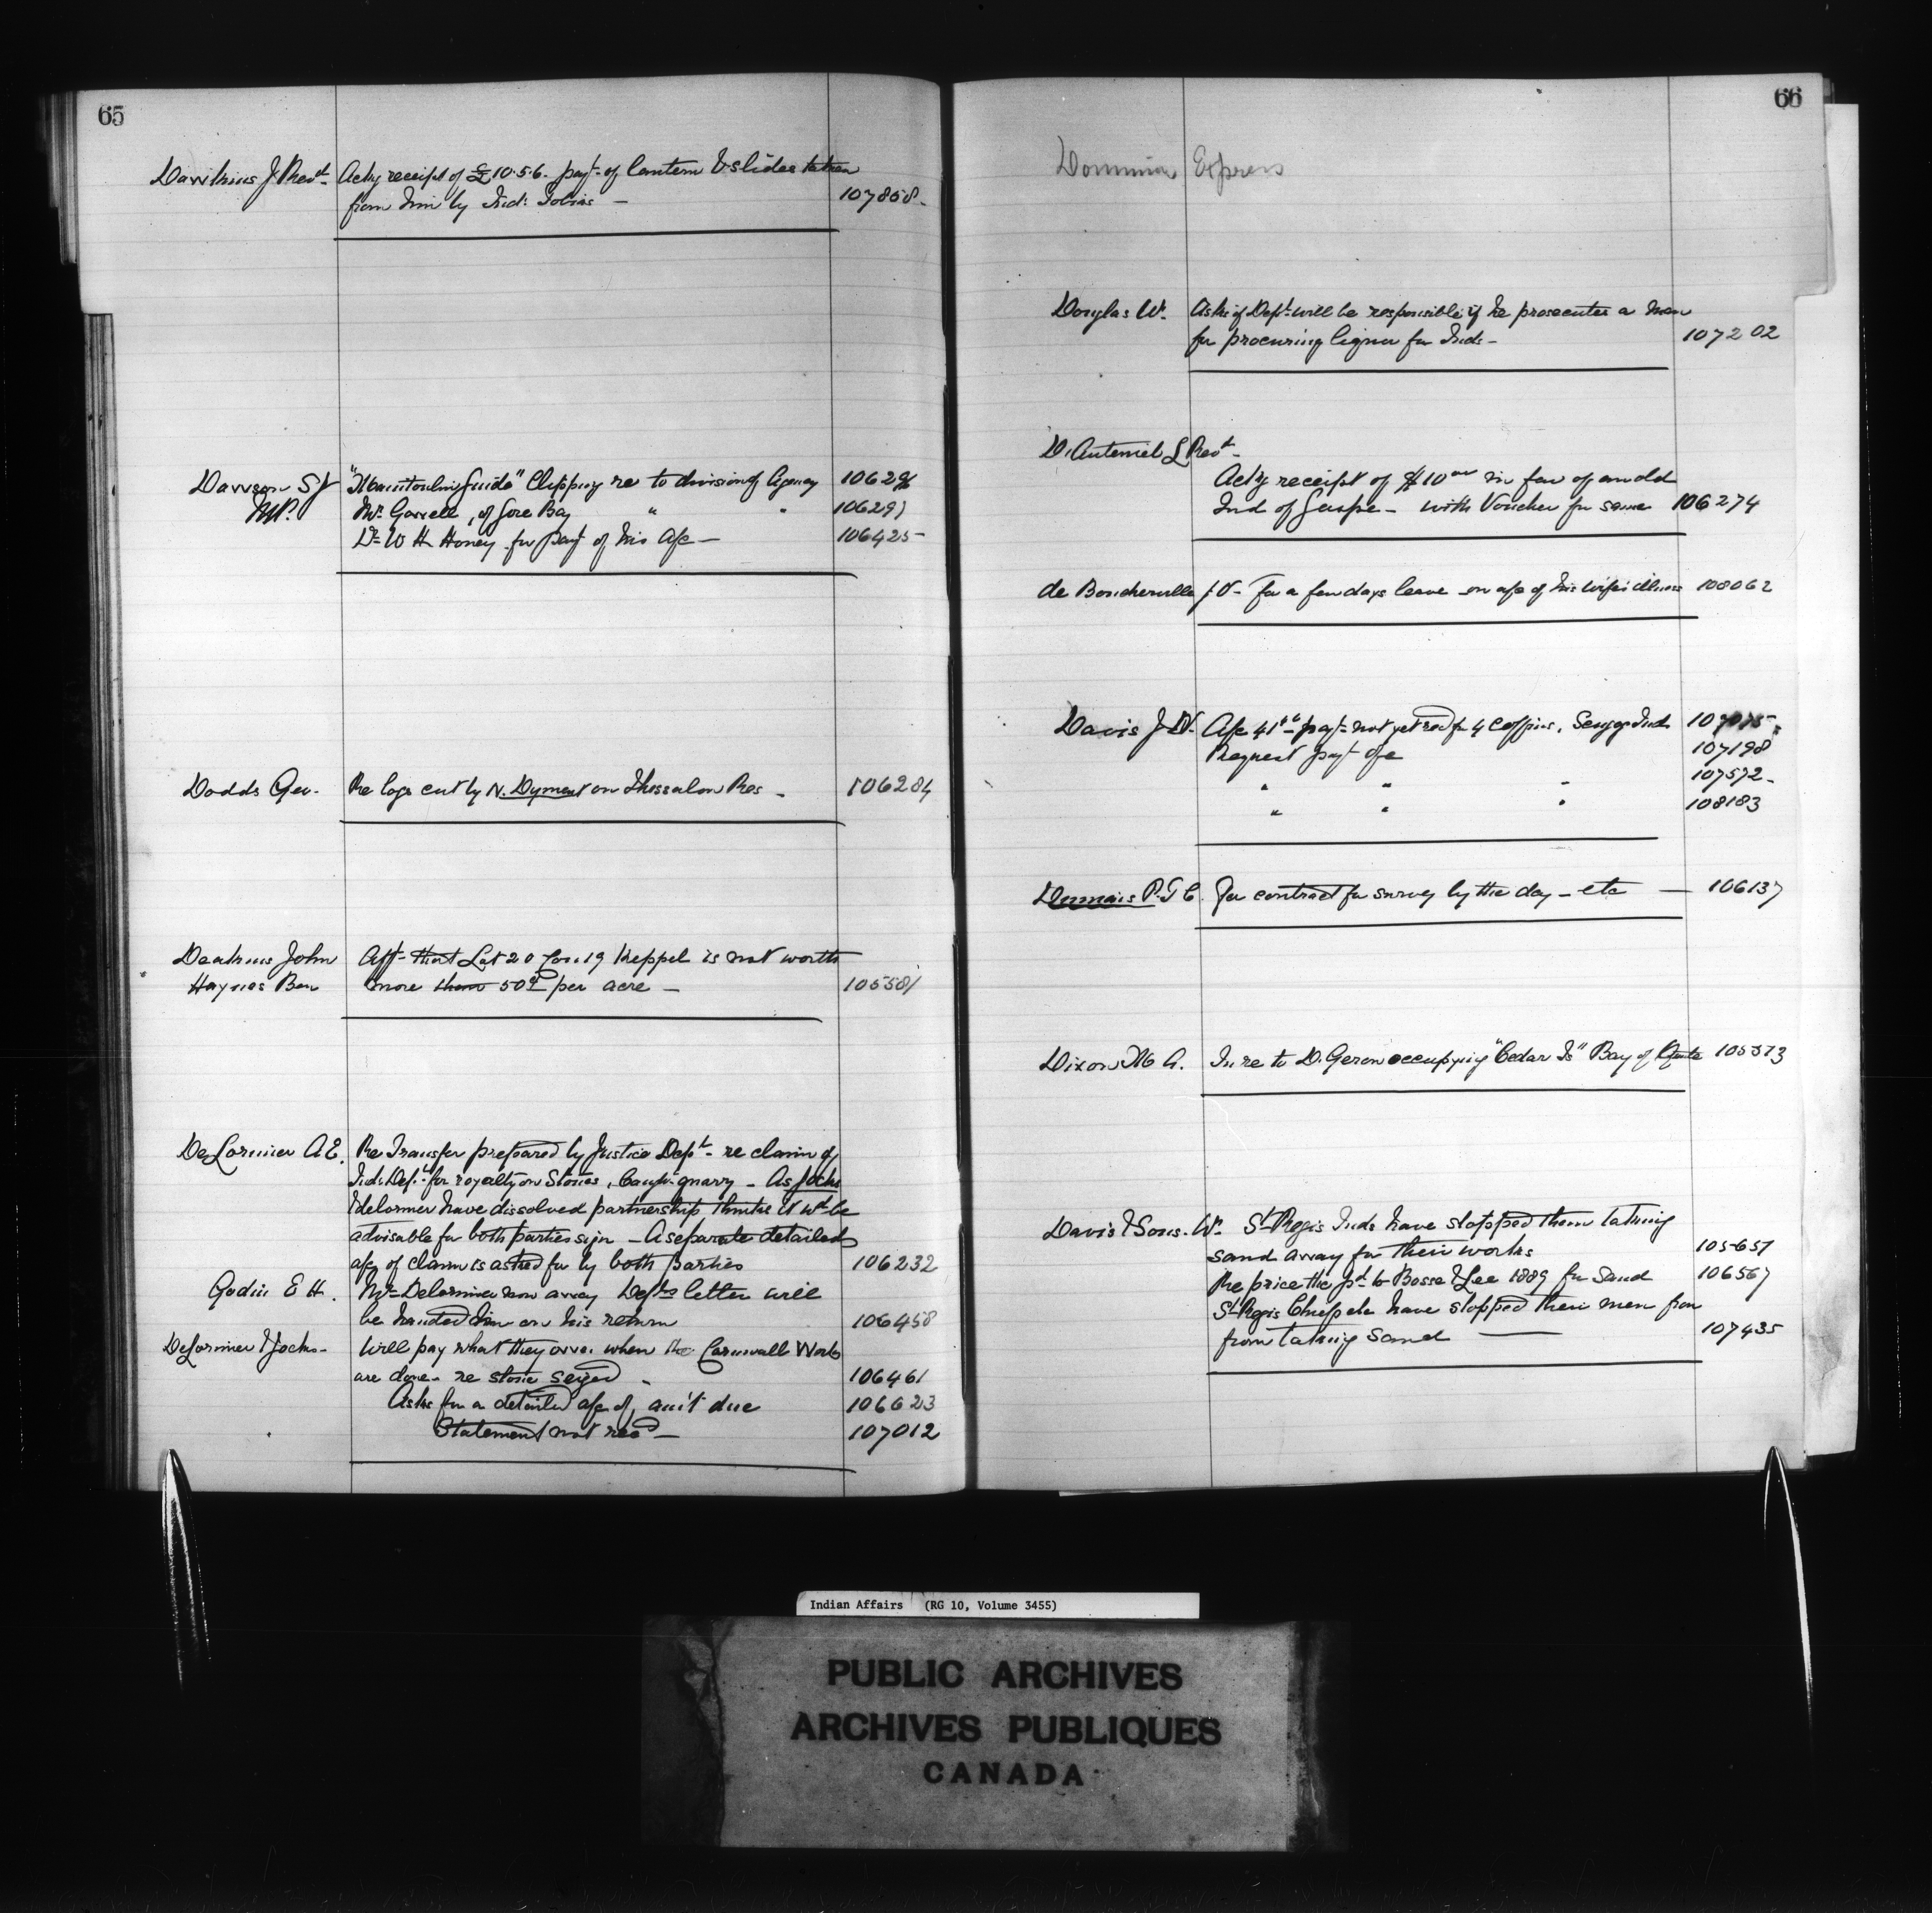 65
Dawkins J Revd Ackg receipt of £10.5.6. payt of lantern & slides taken
from him by Ind: Tobias — 107858
Dawson S J "Manitoulin Guide" Clipping re to division of Agency 10629
M.P. Mr. Garrett, of Gore Bay " " 106297
Dr W H Honey for payt of his a/c — 106425
Dodds Geo. Re logs cut by N. Dyment on Thessalon Res — 106284
John Afft that Lot 20 Con 19 Keppel is not worth
Haynes Ben more than 50c per acre — 105581
DeLorimier A E. Re Transfer prepared by Justice Dept re claim of
Ind. Dept for royalty on Stones, Caugh. quarry — As Jocks
& delormer have dissolved partnership thinks it wd be
advisable for both parties sign — A separate detailed
a/c of claim is asked for by both parties 106232
Godin E H. Mr Delorimier now away Depts letter will
be handed him on his return 106458
DeLorimier & Jocks — Will pay what they owe when the Cornwall Works
are done — re stone seized 106461
Asks for a detailed a/c of amt due 106623
Statement not recd — 107012
66
Dominion Express
Douglas W. Asks if Dept will be responsible if he prosecutes a man
for procuring liquor for Inds — 107202
D'Auteuil L Revd
Ackg receipt of $10 00 in fav of an old
Ind of Gaspe — with Voucher for same 106274
de Boucherville J.V — For a few days leave on a/c of his wife's illness 108062
Davis J W. A/c payt not yet recd for 4 coffins, Sengog Inds
Request payt of a/c 107198
" " " 107572
" " " 108183
Dumais P.T C. For contract for survey by the day — etc — 106137
Dixon In re to D. Geron occupying "Cedar Is" Bay of Quinte 105573
Davis & Sons. Wm St Regis Inds have stopped them taking
sand away for their works 105651
Re price they pd to Bosse & Lee 1889 for Sand 106567
St Regis Chiefs etc have stopped their men from
from taking Sand — 107435
Indian Affairs (RG 10, Volume 3455)
PUBLIC ARCHIVES
ARCHIVES PUBLIQUES
CANADA